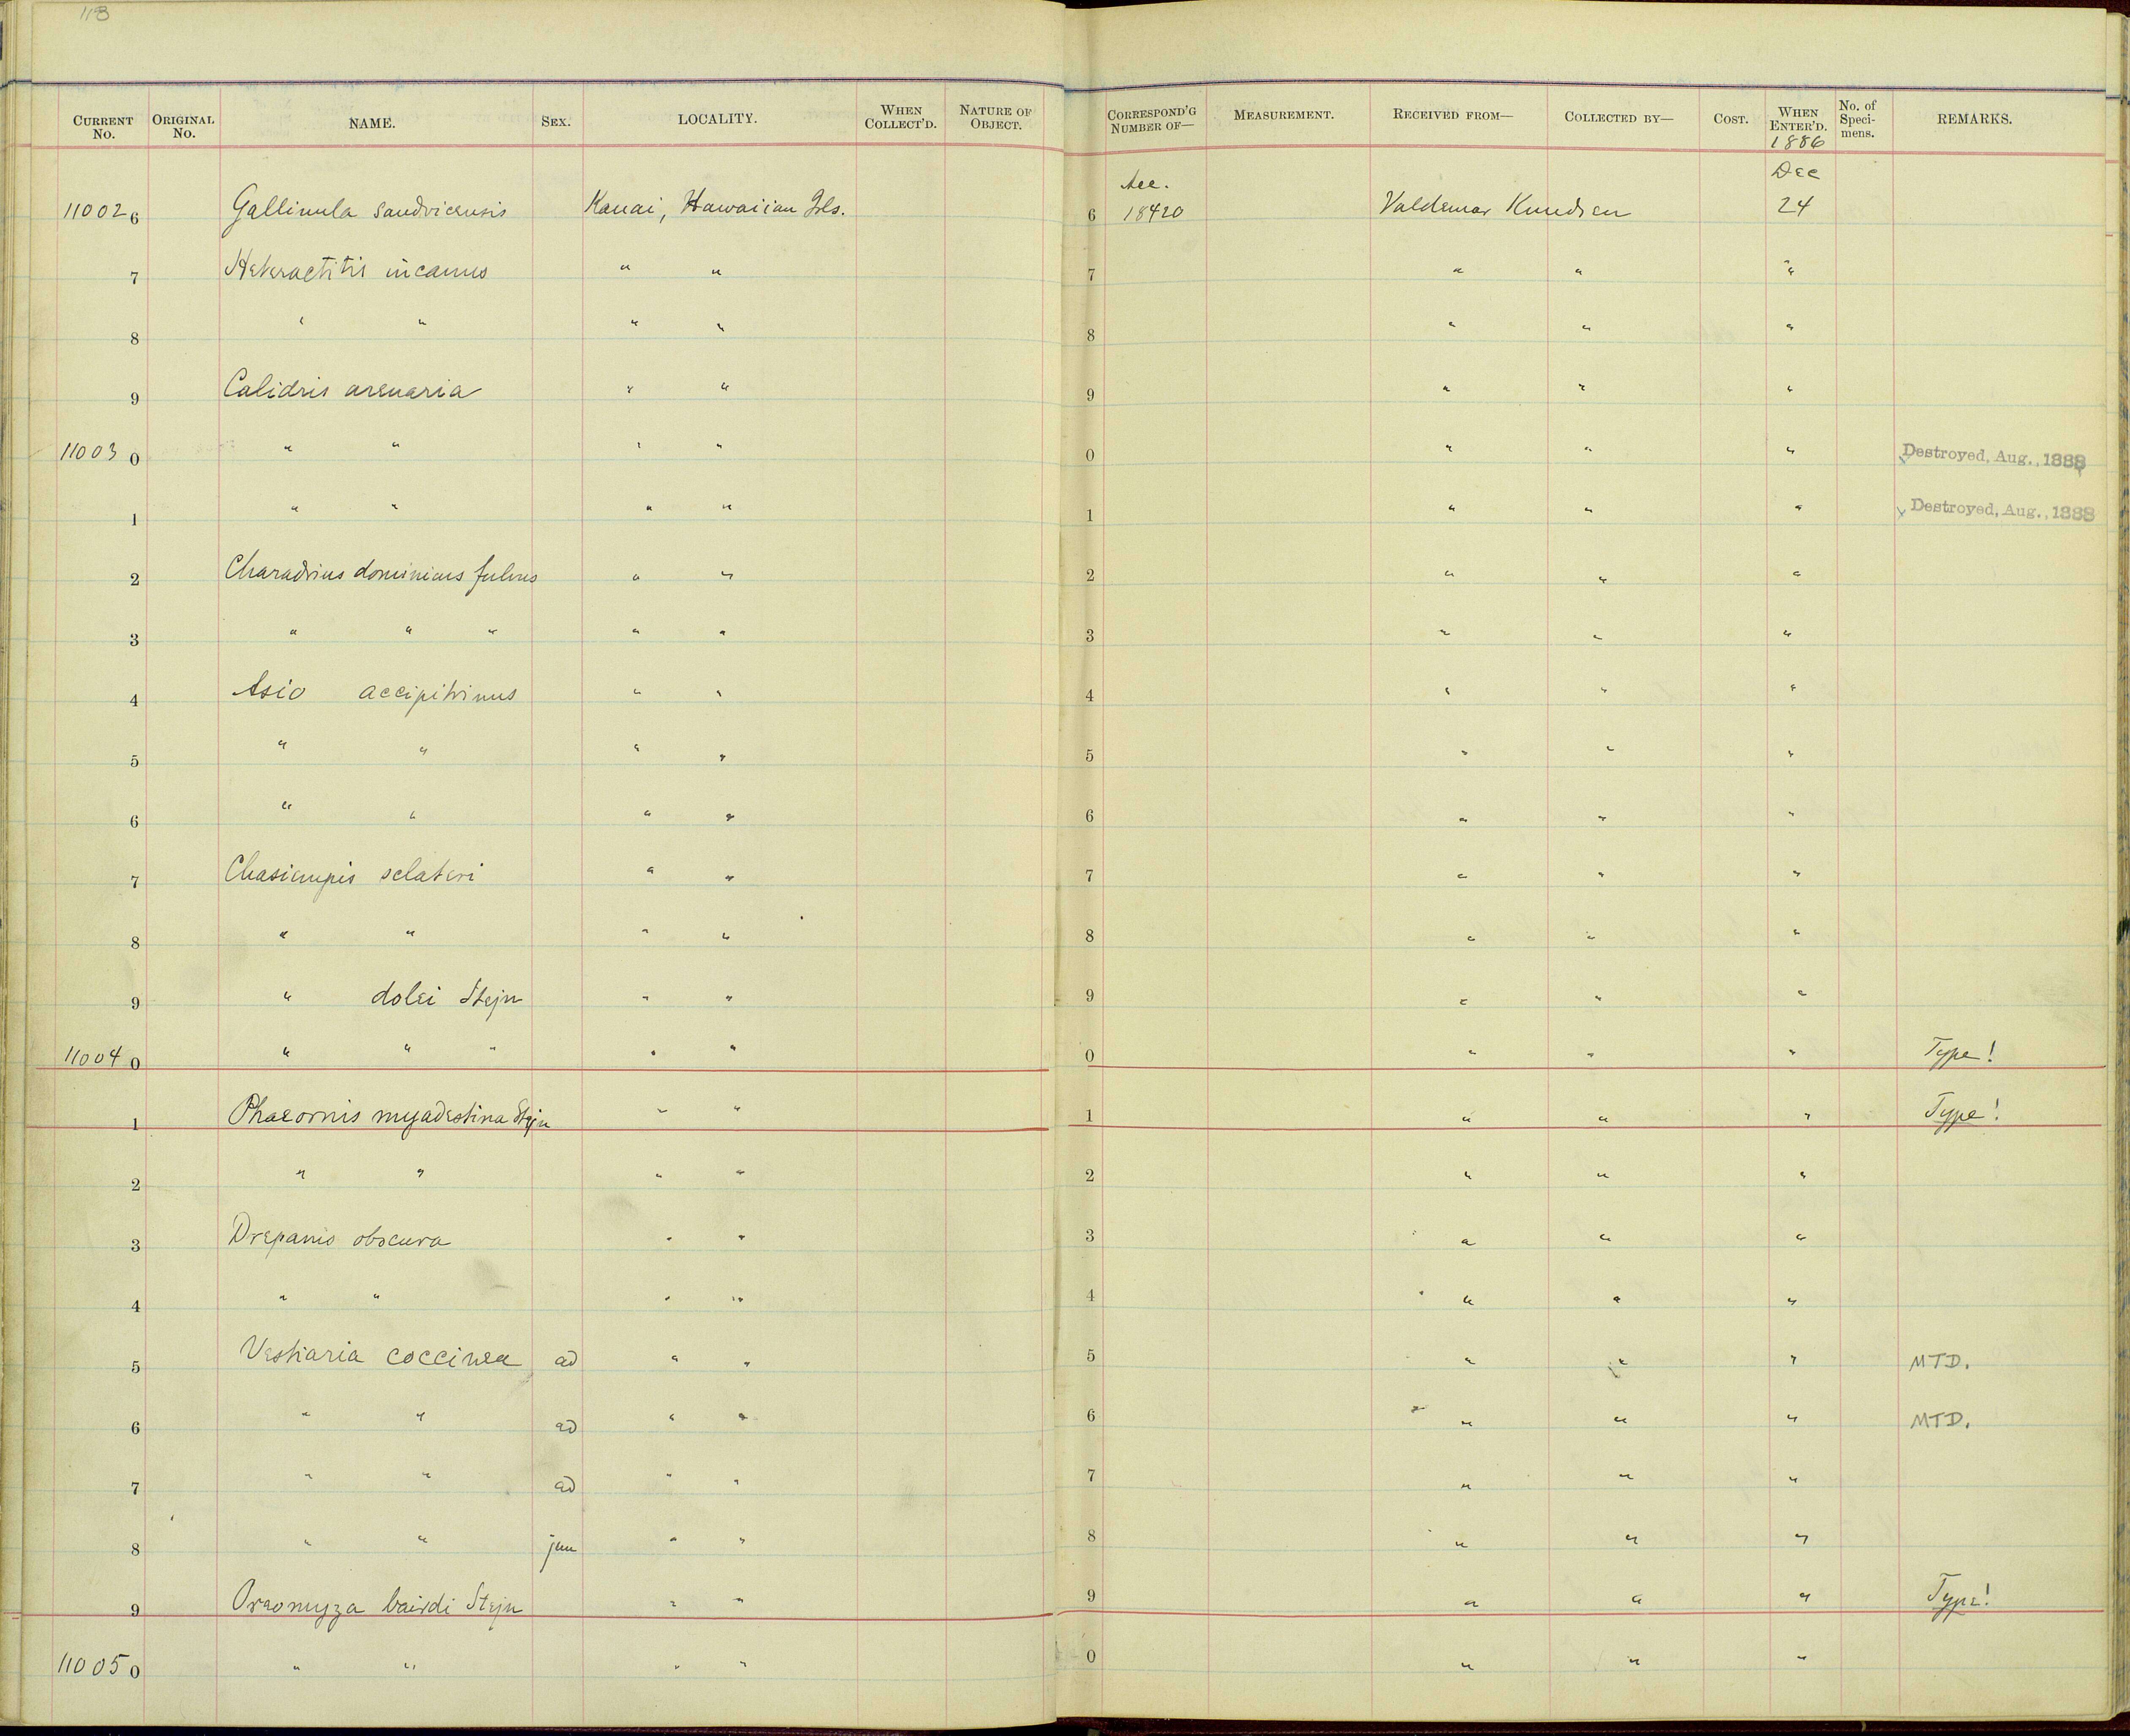 118
CURRENT No. ORIGINAL No. NAME. SEX. LOCALITY. WHEN COLLECT'D. NATURE OF OBJECT. CORRESPOND'G NUMBER OF— MEASUREMENT. RECEIVED FROM— COLLECTED BY— COST. WHEN ENTER'D. No. of Specimens. REMARKS.
1886
Acc. Dec
11002 6 Gallinula sandvicensis Kauai, Hawaiian Isls. 6 18420 Valdemar Knudsen 24
7 Heteractitis incanus " " 7 " " "
8 " " " " 8 " " "
9 Calidris arenaria " " 9 " " "
11003 0 " " " " 0 " " " Destroyed, Aug., 1888
1 " " " " 1 " " " Destroyed, Aug., 1888
2 Charadrius dominicus fulvus " " 2 " " "
3 " " " " " 3 " " "
4 Asio accipitrinus " " 4 " " "
5 " " " " 5 " " "
6 " " " " 6 " " "
7 Chasiempis sclateri " " 7 " " "
8 " " " " 8 " " "
9 " dolei Stejn " " 9 " " "
11004 0 " " " " " 0 " " " Type!
1 Phaeornis myadestina Stejn " " 1 " " " Type!
2 " " " " 2 " " "
3 Drepanis obscura " " 3 " " "
4 " " " " 4 " " "
5 Vestiaria coccinea ad " " 5 " " " MTD.
6 " " ad " " 6 " " " MTD.
7 " " ad " " 7 " " "
8 " " juv " " 8 " " "
9 Oreomyza bairdi Stejn " " 9 " " " Type!
11005 0 " " " " 0 " " "